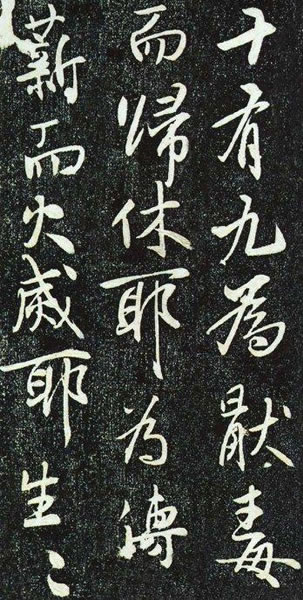 十有九為猒毒
而歸休耶為傳
薪而火烕耶生〻